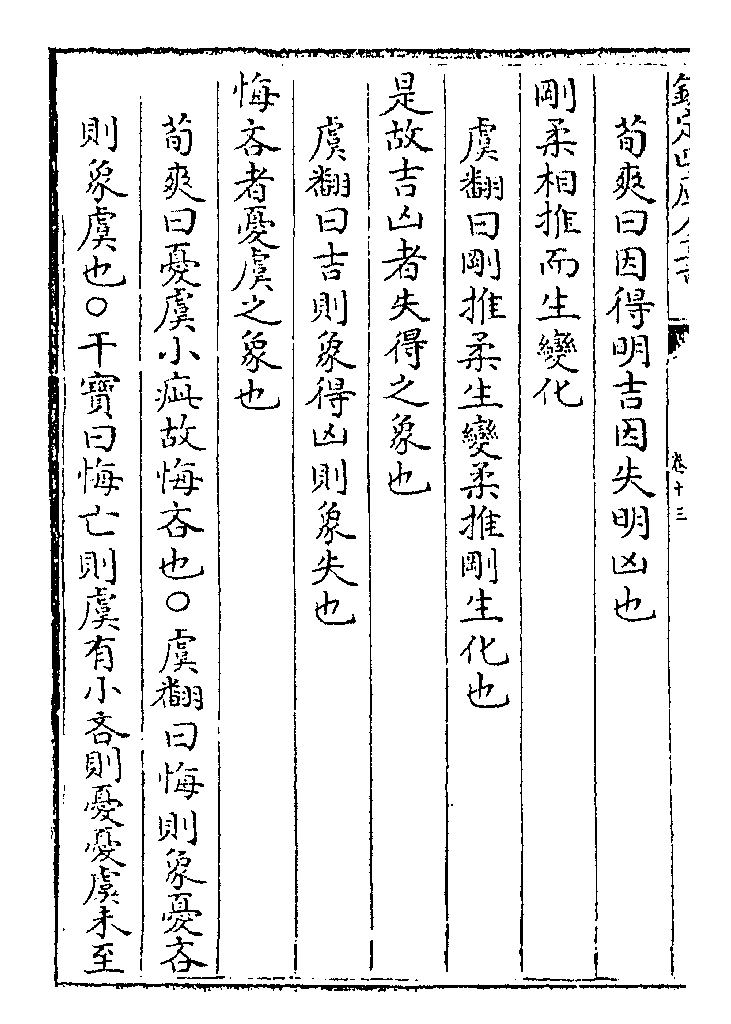 欽定四庫全書
卷十三
荀爽曰因得明吉因失明凶也
剛柔相推而生變化
虞翻曰剛推柔生變柔推剛生化也
是故吉凶者失得之象也
虞翻曰吉則象得凶則象失也
悔吝者憂虞之象也
荀爽曰憂虞小疵故悔吝也○虞翻曰悔則象憂吝
則象虞也○干寶曰悔亡則虞有小吝則憂憂虞未至